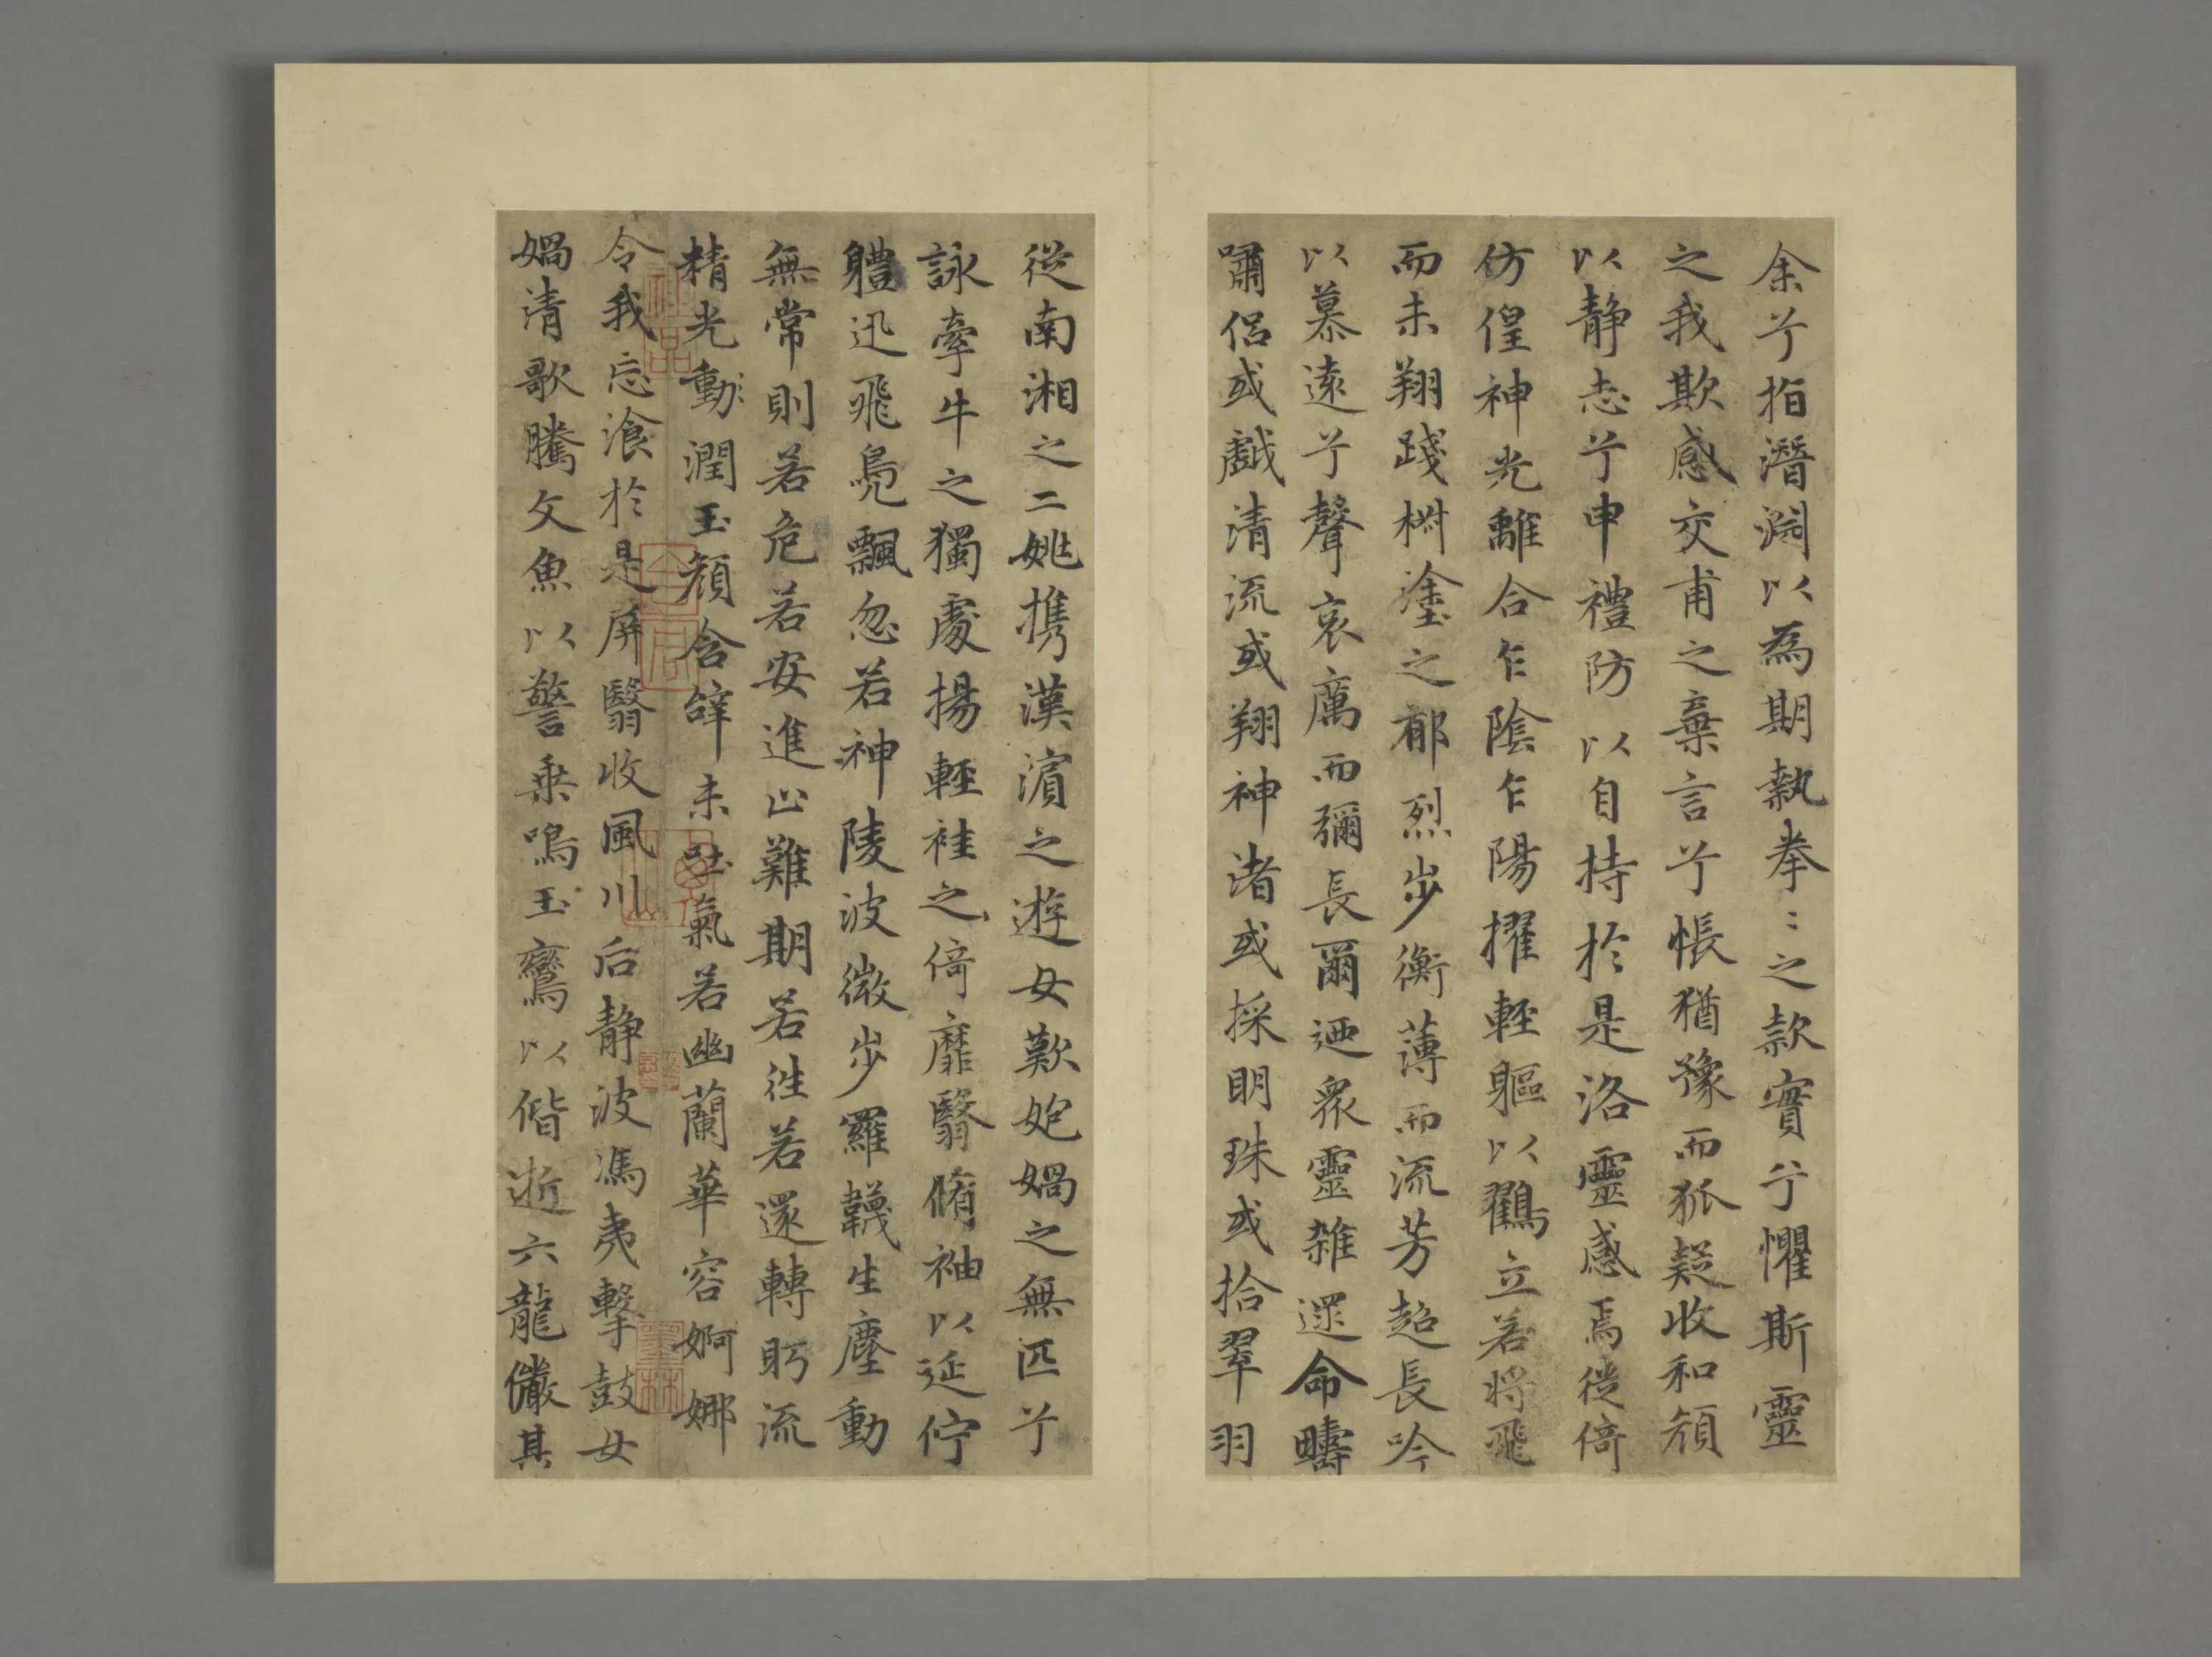 余兮指潛淵以為期執拳〻之款實兮懼斯靈
之我欺感交甫之棄言兮悵猶豫而狐疑收和顏
以静志兮申禮防以自持於是洛靈感焉徙倚
仿偟神光離合乍陰乍陽擢輕軀以鶴立若將飛
而未翔踐椒塗之郁烈步衡薄而流芳超長吟
以慕遠兮聲哀厲而彌長爾迺衆靈雜遝命疇
嘯侶或戲清流或翔神渚或採明珠或拾翠羽
從南湘之二姚攜漢濱之遊女歎𡛞媧之無匹兮
詠牽牛之獨處揚輕袿之倚靡翳脩袖以延佇
體迅飛鳧飄忽若神陵波微步羅韈生塵動
無常則若危若安進止難期若往若還轉眄流
精光動潤玉顏含辭未吐氣若幽蘭華容婀娜
令我忘飡於是屏翳收風川后静波馮夷擊鼓女
媧清歌騰文魚以警乗鳴玉鸞以偕逝六龍儼其
神品
墨林